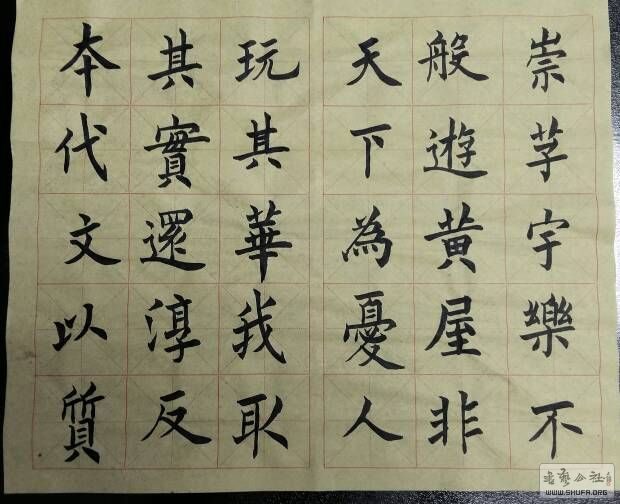 崇茅宇樂不
般遊黄屋非
天下為憂人
玩其華我取
其實還淳反
夲代文以質
书艺公社
WWW.SHUFA.ORG